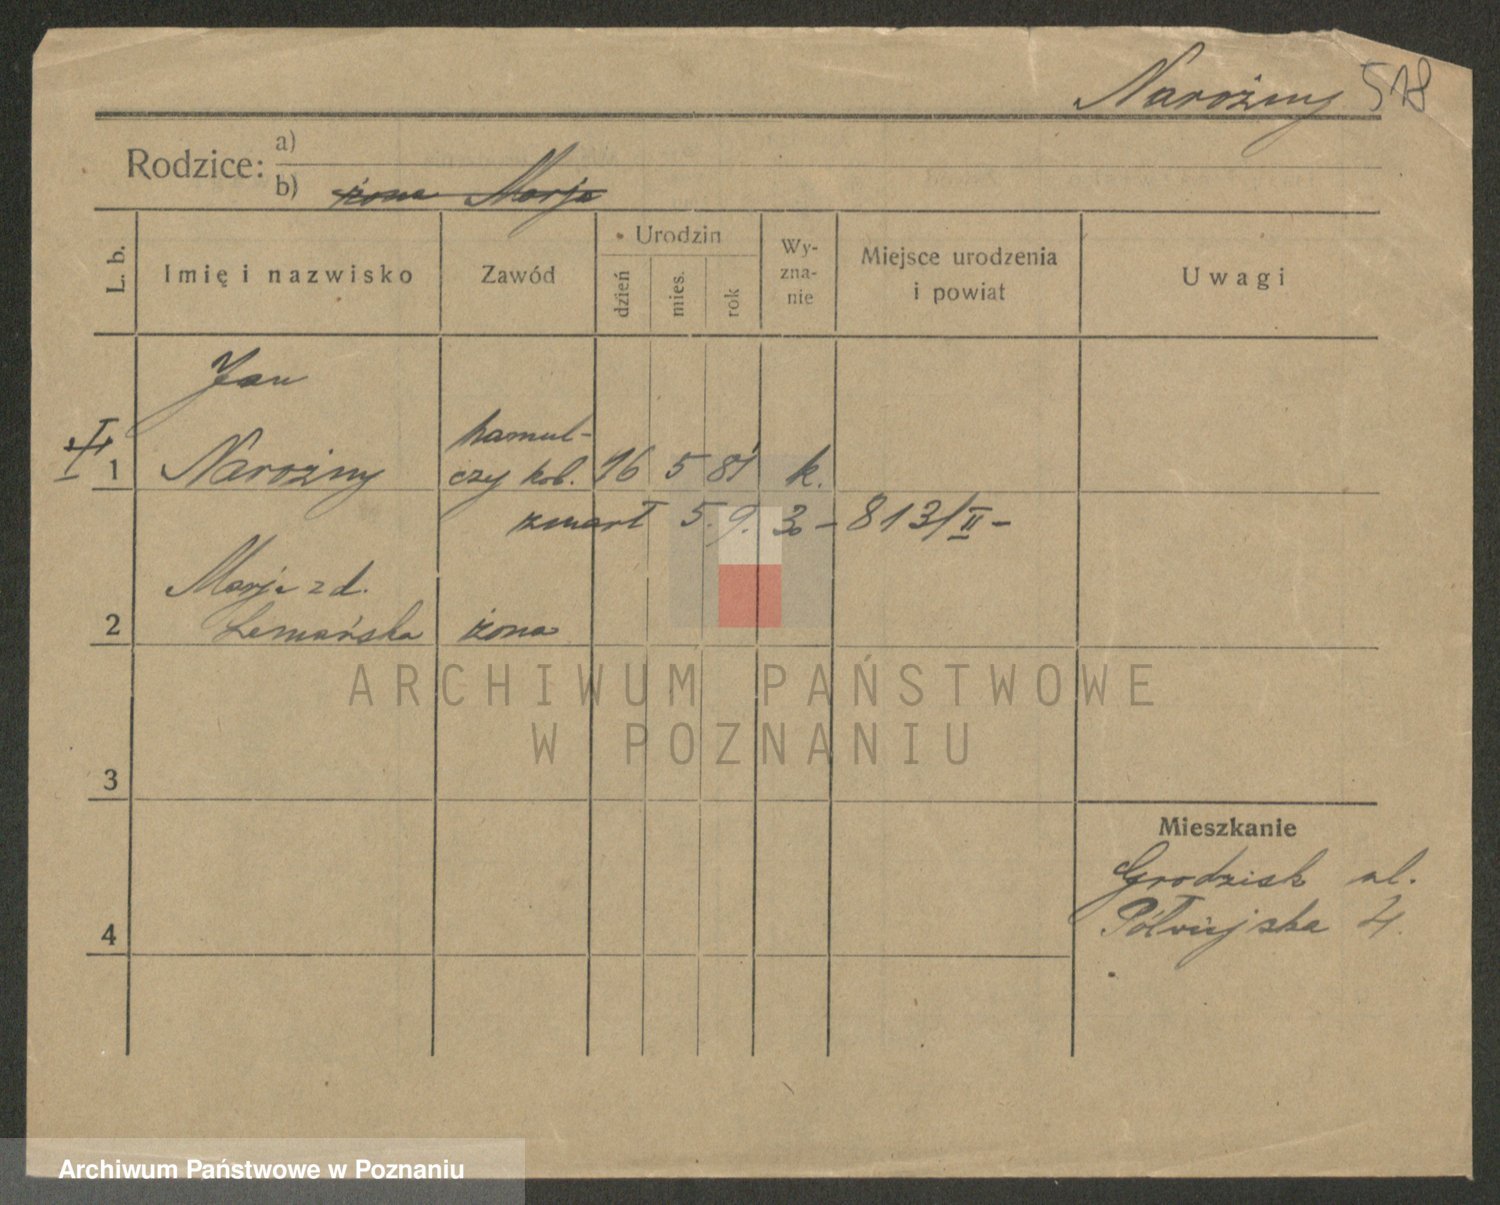 Narożny 518
Rodzice:
a)
b) żona Marja
L. b.
Imię i nazwisko
Zawód
Urodzin
dzień
mies.
rok
Wy-
zna-
nie
Miejsce urodzenia
i powiat
Uwagi
Jan
1 Narożny
hamul-
czy kol. 16 5 81 k.
zmarł 5. 9. 30 – 813/II –
Marja z d.
2 Lemańska żona
3
4
Mieszkanie
Grodzisk ul.
Półwiejska 4.
ARCHIWUM PAŃSTWOWE
W POZNANIU
Archiwum Państwowe w Poznaniu